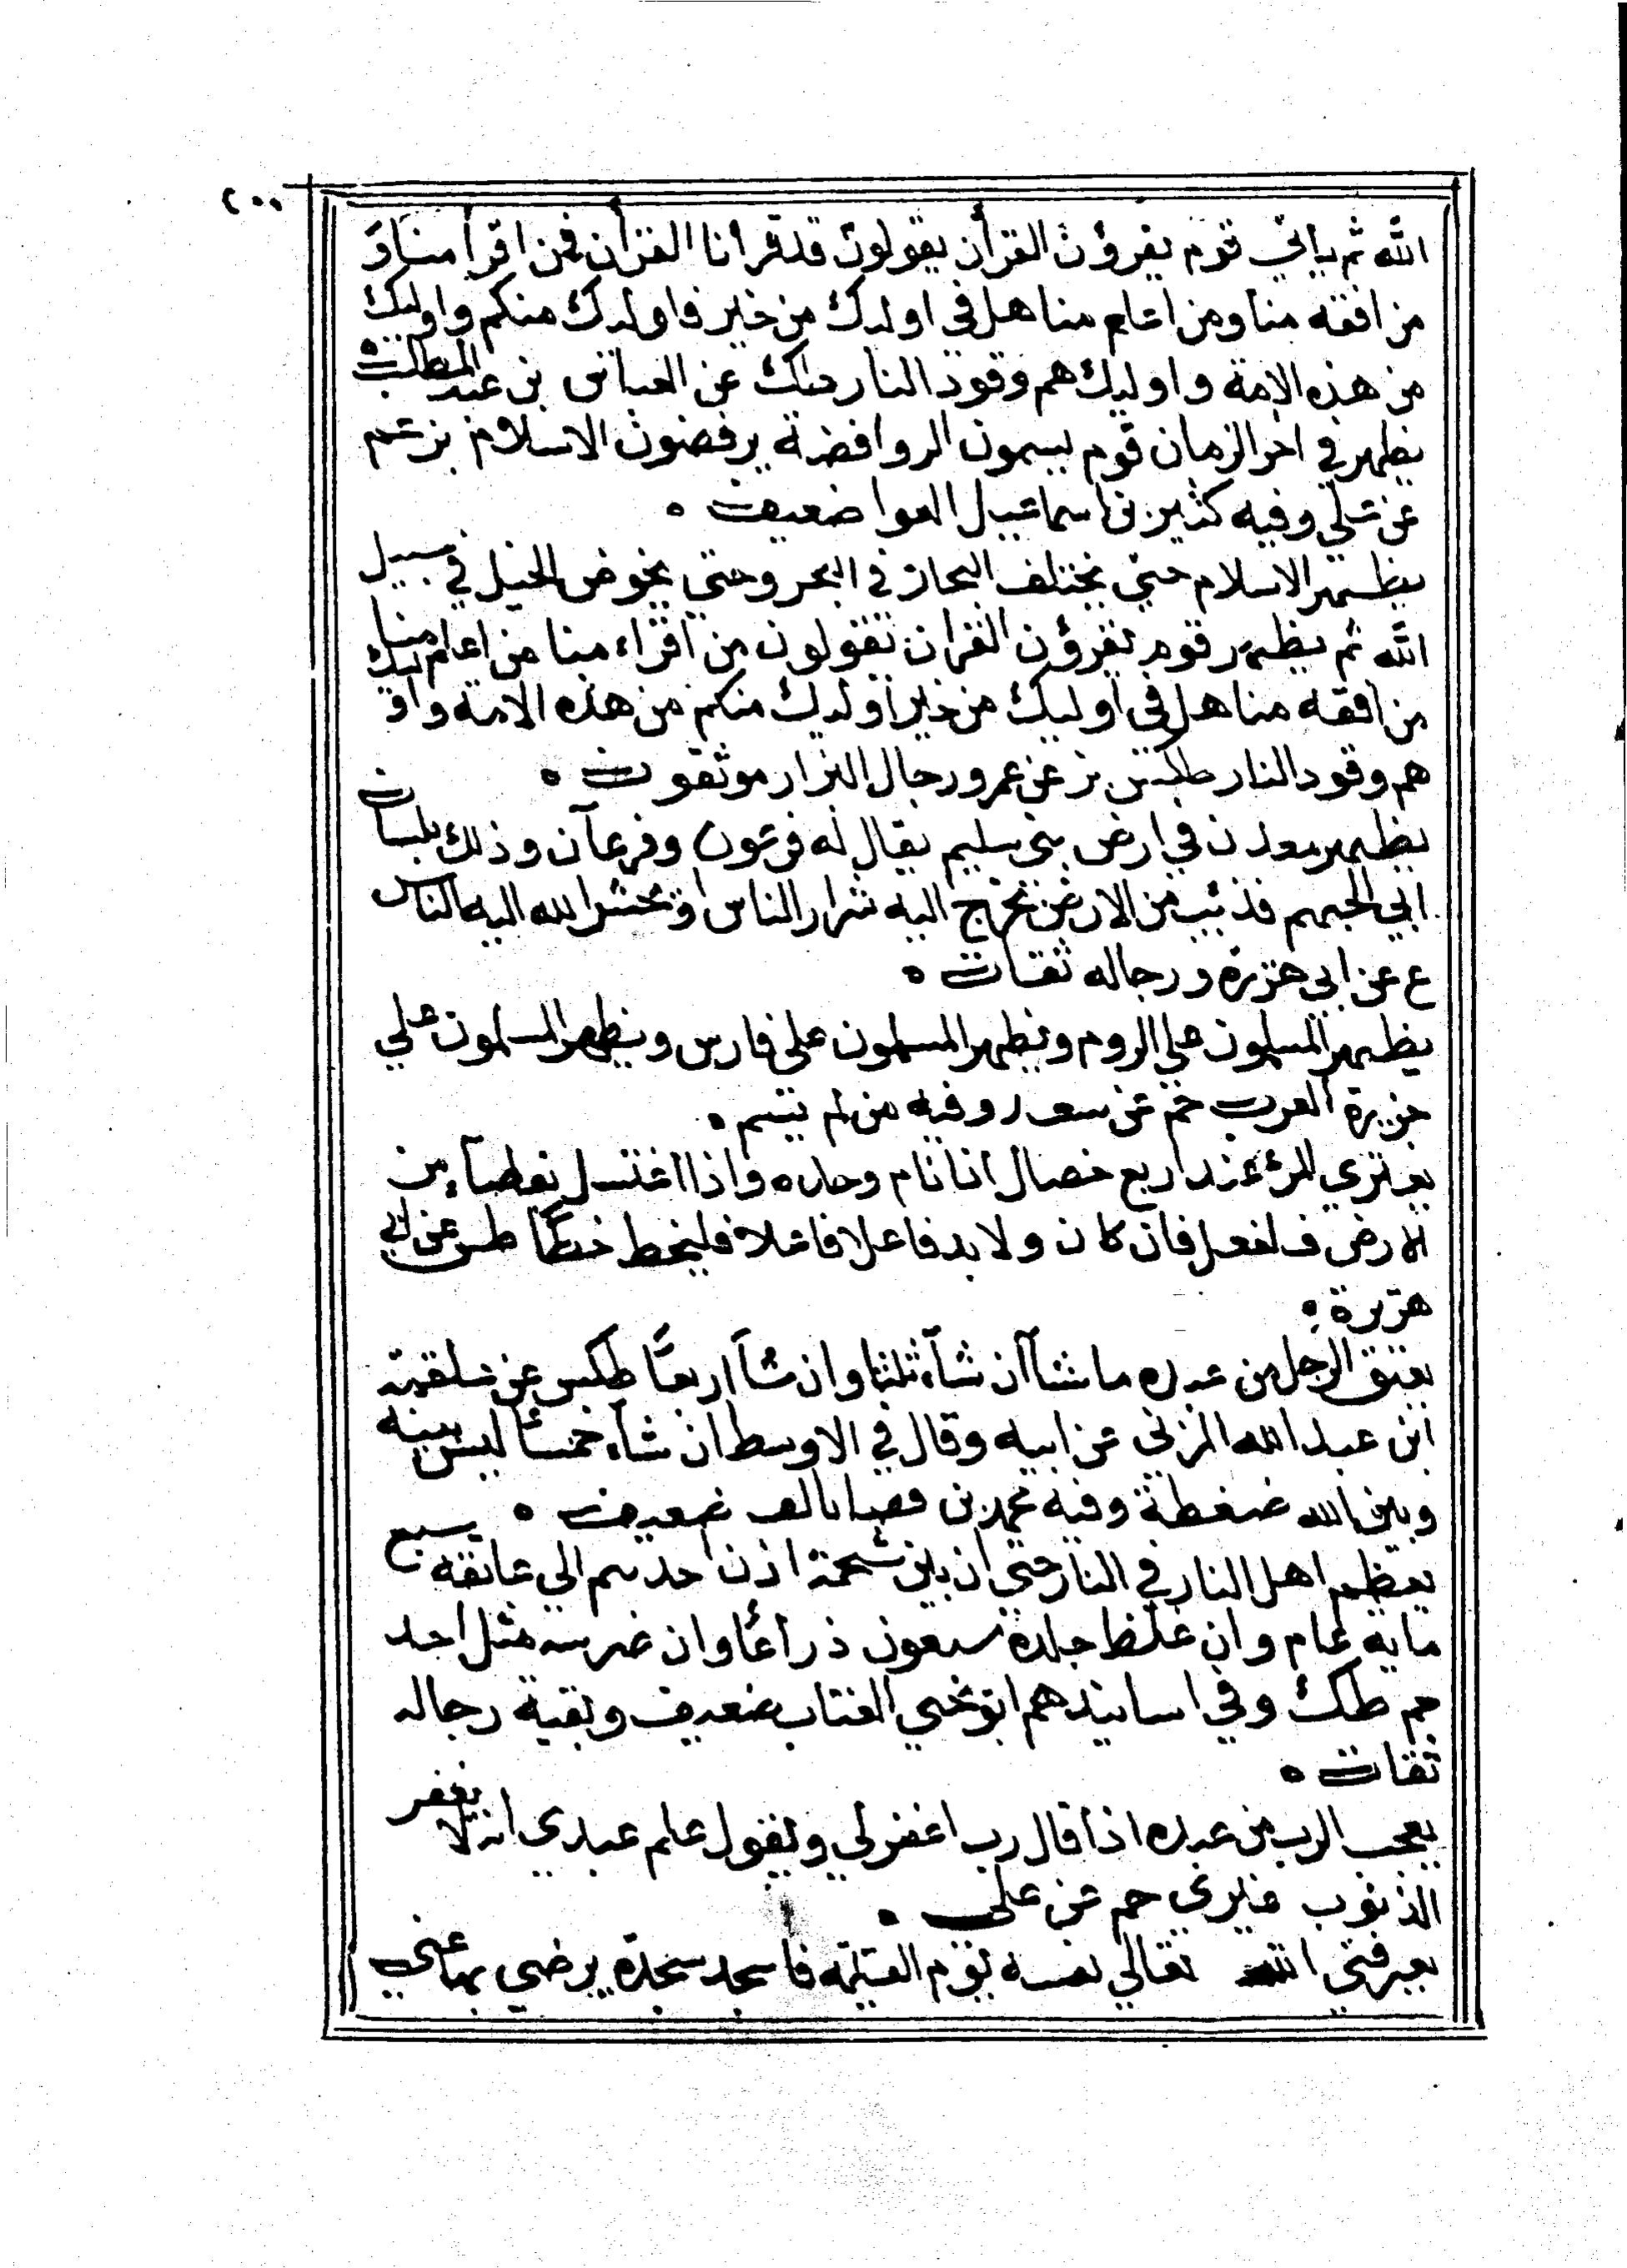 ٢٠٠
الله ثم ياتي قوم يقرؤن القرأن يقولون قد قرأنا القرأن فمن اقرأ منا و
من افقه منا ومن اعلم منا هل في اولئك من خير فاولئك منكم واوليك
من هذه الامة واوليك هم وقود النار طك عن العباس بن عبد المطلب ه
يظهر في اخر الزمان قوم يسمون الروافضة يرفضون الاسلام بز عم
عن علي وفيه كثير بن اسماعيل النوا ضعيف ه
يظهر الاسلام حتي يختلف التجار في البحر وحتي يخوض الخيل في سبيل
الله ثم يظهر قوم يقرؤن القران يقولون من اقراء منا من اعلم منا
من افقه منا هل في اوليك من خير اولئك منكم من هذه الامة واوليك
هم وقود النار طكس بز عن عمر ورجال البزار موثقون ه
يظهر معدن في ارض بني سليم يقال له فرعون وفرعآن وذلك بلسان
ابي الجهم قذئب من الارض تخرج اليه شرار الناس او يحشر الله اليه الناس
ع عن ابي هريرة ورجاله ثقات ه
يظهر المسلمون علي الروم ويظهر المسلمون علي فارس ويظهر المسلمون علي
جزيرة العرب حم عن سعد وفيه من لم يسم ه
يعتري المرء عند اربع خصال اذا نام وحده واذا اغتسل بفضاء من
الارض فليفعل فان كان ولا بد فاعلا فاعلا فليخط خطا طس عن ابي
هريرة ه
يعتق الرجل من عبده ما شآ ان شآء ثلثا وان شآ اربعًا طكس عن علقمة
ابن عبد الله المزني عن ابيه وقال في الاوسط ان شآء خمسًا ليس بينه
وبين الله ضغطة وفيه محمد بن فضا بالف ضعيف ه
يعظم اهل النار في النار حتي ان بين شحمة اذن احدهم الي عاتقه سبع
ماية عام وان غلظ جلده سبعون ذراعًا وان ضرسه مثل احد
حم طك وفي اسانيدهم ابو يحيي القتات ضعيف وبقية رجاله
ثقات ه
يعجب الرب من عبده اذا قال رب اغفر لي ويقول علم عبدي انه لا يغفر
الذنوب غيري حم عن علي ه
يعرفني الله تعالي نفسه يوم القيمة فاسجد سجدة يرضي بها عني